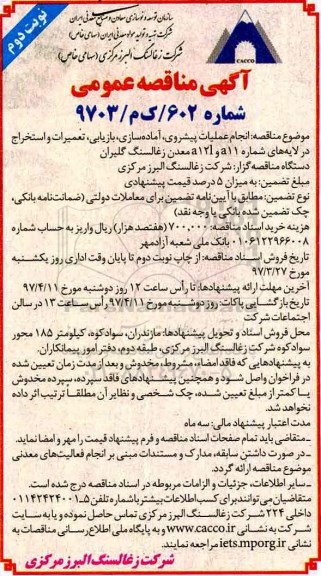 نوبت دوم
سازمان توسعه و نوسازی معادن و صنایع معدنی ایران
شرکت تهیه و تولید مواد معدنی ایران (سهامی خاص)
شرکت زغالسنگ البرز مرکزی (سهامی خاص)
CACCO
آگهی مناقصه عمومی
شماره ۶۰۲/ک م/۹۷۰۳
موضوع مناقصه: انجام عملیات پیشروی، آماده‌سازی، بازیابی، تعمیرات و استخراج
در لایه‌های شماره a۱۱ و a۱۲l معدن زغالسنگ گلیران
دستگاه مناقصه‌گزار: شرکت زغالسنگ البرز مرکزی
مبلغ تضمین: به میزان ۵ درصد قیمت پیشنهادی
نوع تضمین: مطابق با آیین‌نامه تضمین برای معاملات دولتی (ضمانت‌نامه بانکی،
چک تضمین شده بانکی یا وجه نقد)
هزینه خرید اسناد مناقصه: ۷۰۰,۰۰۰ (هفتصد هزار) ریال واریز به حساب شماره
۰۱۰۶۱۲۲۹۶۶۰۰۸ بانک ملی شعبه آزادمهر
تاریخ فروش اسناد مناقصه: از چاپ نوبت دوم تا پایان وقت اداری روز یکشنبه
مورخ ۹۷/۳/۲۷
آخرین مهلت ارائه پیشنهادها: تا رأس ساعت ۱۲ روز دوشنبه مورخ ۹۷/۴/۱۱
تاریخ بازگشایی پاکات: روز دوشنبه مورخ ۹۷/۴/۱۱ رأس ساعت ۱۳ در سالن
اجتماعات شرکت
محل فروش اسناد و تحویل پیشنهادها: مازندران، سوادکوه، کیلومتر ۱۸۵ محور
سوادکوه شرکت زغالسنگ البرز مرکزی، طبقه دوم، دفتر امور پیمانکاران.
به پیشنهادهایی که فاقد امضاء، مشروط، مخدوش و بعد از مدت زمان تعیین شده
در فراخوان واصل شود و همچنین پیشنهادهای فاقد سپرده، سپرده مخدوش
یا کمتر از مبلغ تعیین شده، چک شخصی و نظایر آن مطلقاً ترتیب اثر داده
نخواهد شد.
مدت اعتبار پیشنهاد مالی: سه ماه
ـ متقاضی باید تمام صفحات اسناد مناقصه و فرم پیشنهاد قیمت را مهر و امضا نماید.
ـ در صورت داشتن سابقه، مدارک و مستندات مبنی بر انجام فعالیت‌های معدنی
موضوع مناقصه ارائه گردد.
ـ سایر اطلاعات، جزئیات و الزامات مربوطه در اسناد مناقصه درج شده است.
متقاضیان می‌توانند برای کسب اطلاعات بیشتر با شماره تلفن ۵ـ۰۱۱۴۲۴۲۴۰۰۱
داخلی ۲۲۴ شرکت زغالسنگ البرز مرکزی تماس حاصل نموده و یا به سایت
شرکت به نشانی www.cacco.ir و به پایگاه ملی اطلاع‌رسانی مناقصات به
نشانی iets.mporg.ir مراجعه نمایند.
شرکت زغالسنگ البرز مرکزی